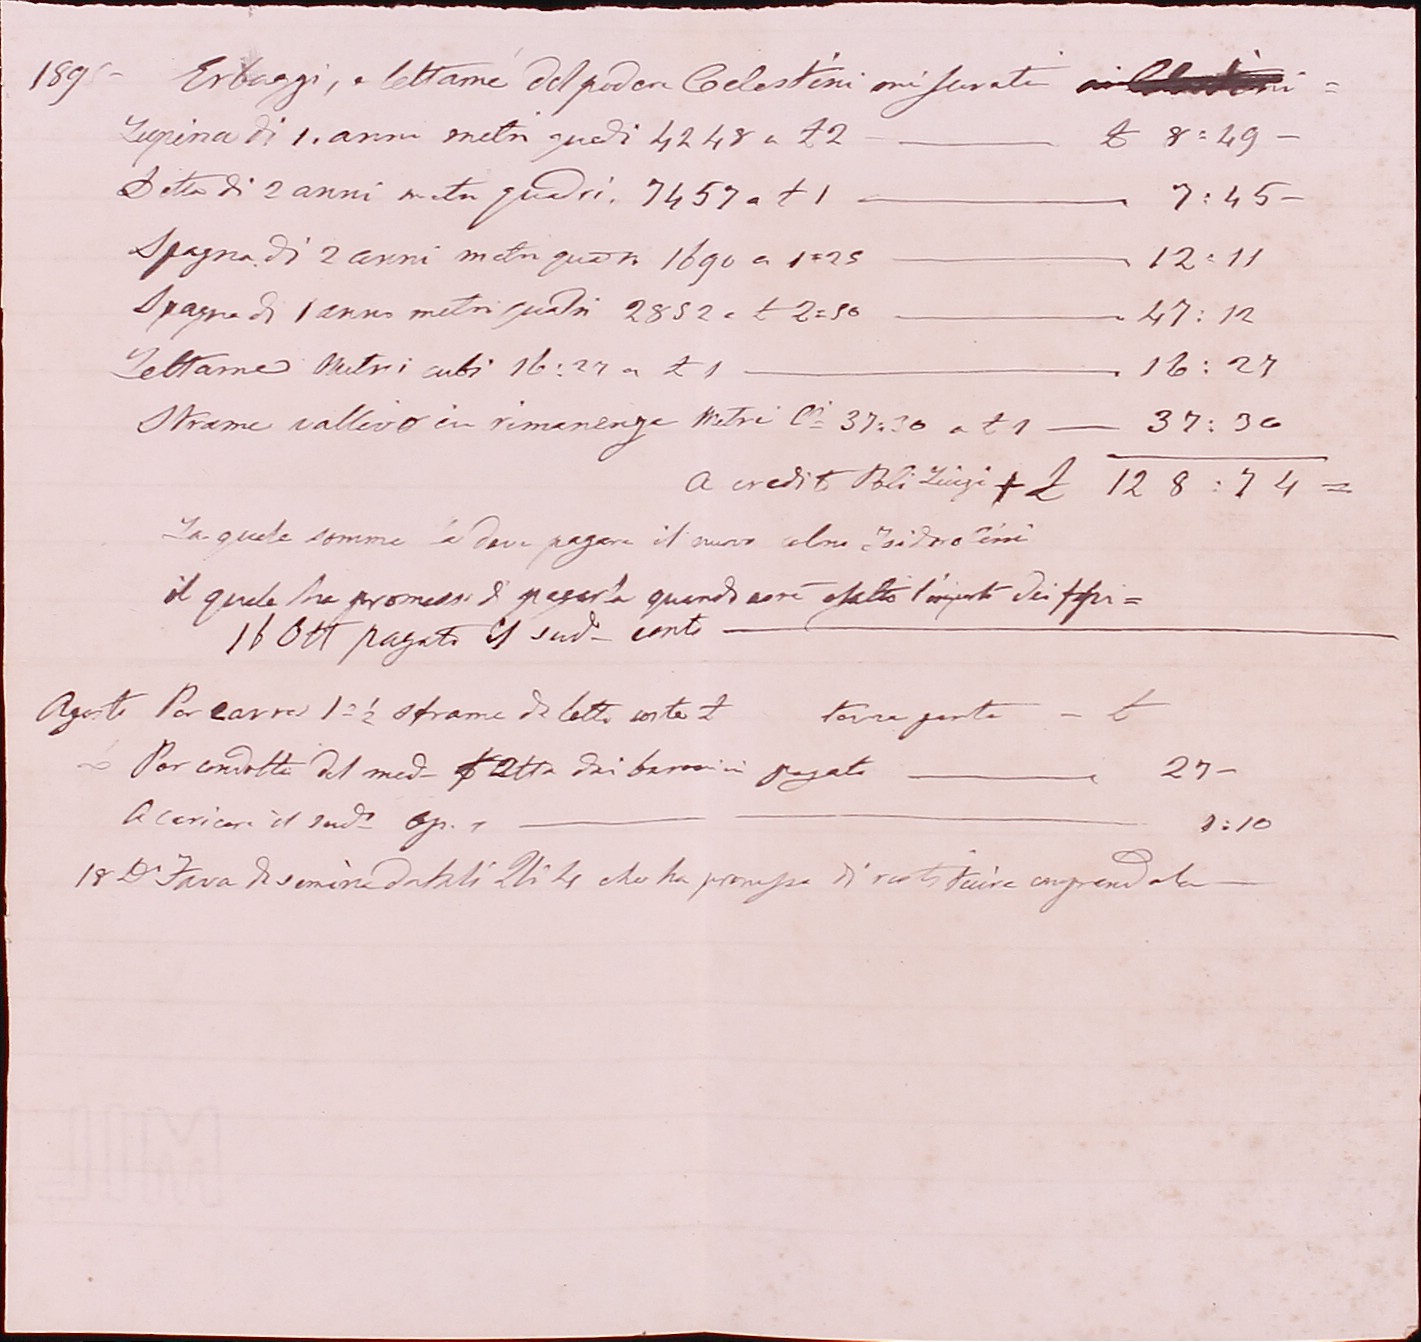 189 - Erbaggi, e lettame del podere Celestini misurati =
Lupina di 1. anno metri quadi 4248 a £ 2 — £ 8:49 -
Detta di 2 anni metri quadri. 7457 a £ 1 — 7:45 -
Spagna di 2 anni metri quadri 1690 a 1=25 — 12:11
Spagna di 1 anno metri quadri 2852 a £ 2=50 — 47:12
Lettame Metri cubi 16:27 a £ 1 — 16:27
Strame vallivo in rimanenza Metri C.i 37:30 a £ 1 — 37:30
A credito Poli Luigi + £ 128:74 =
La quale somma la deve pagare il nuovo Isidoro
il quale ha promesso di pagarla quando avrà esatto l'importo dei =
16 Ott pagato il sud.o conto
Agosto Per carra 1=½ strame da letto costa £ terza parte - £
Per condotta del med.o dai barocciai pagato — 27 -
A caricare il sud.o op. — 1:10
18 D.o Fava da semina datali Qli 4 che ha promesso di restituire